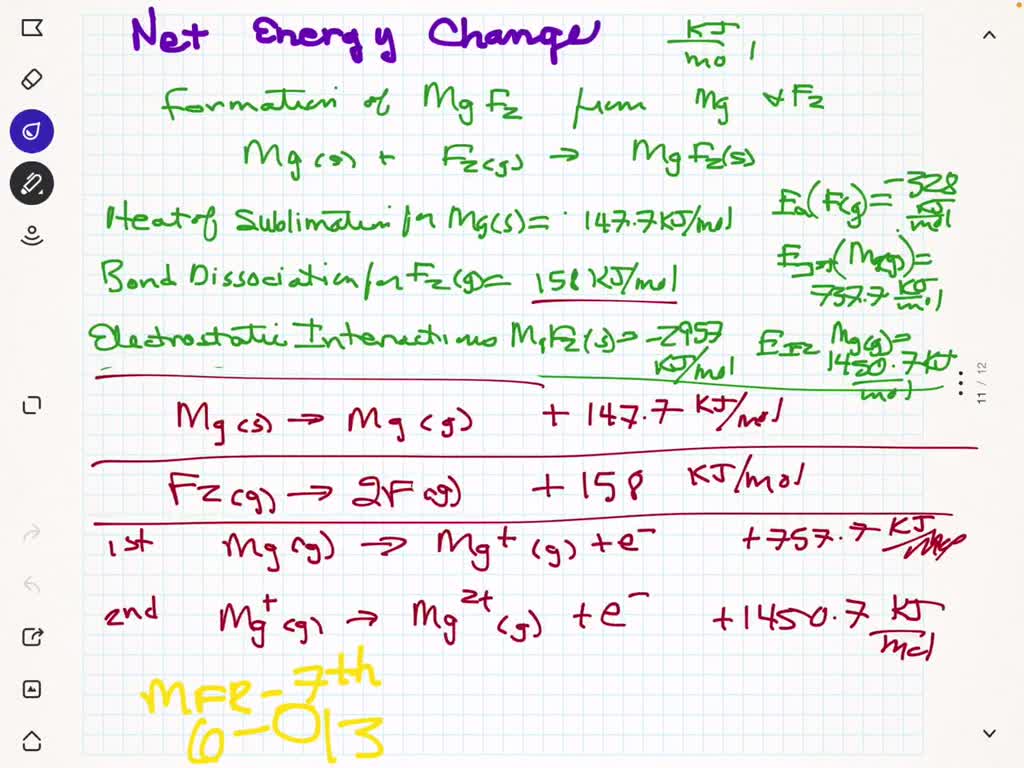 Net Energy Change KJ/mol
Formation of MgF2 from Mg & F2
Mg(s) + F2(g) → MgF2(s)
Heat of Sublimation for Mg(s) = 147.7 KJ/mol
Ea(F(g)) = -328 KJ/mol
Bond Dissociation for F2(g) = 158 KJ/mol
(Mg(g)) =
737.7 KJ/mol
Electrostatic Interactions MgF2(s) = -2957 KJ/mol
EI2 Mg(g) = 1450.7 KJ/mol
Mg(s) → Mg(g) + 147.7 KJ/mol
F2(g) → 2F(g) + 158 KJ/mol
1st Mg(g) → Mg+ (g) + e- +757.7 KJ/mol
2nd Mg+ (g) → Mg2+ (g) + e- +1450.7 KJ/mol
MFR-7th
6-013
11 / 12